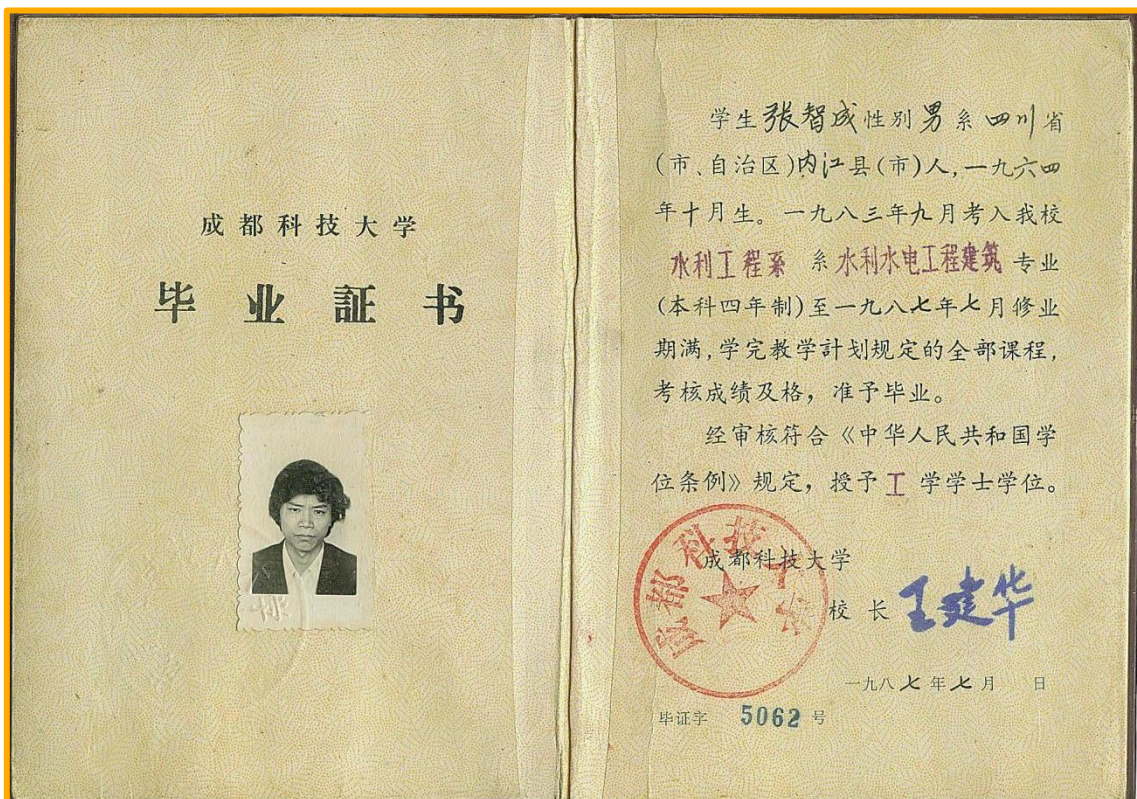 成都科技大学
毕业証书
学生张智成性别男系四川省
(市、自治区)内江县(市)人,一九六四
年十月生。一九八三年九月考入我校
水利工程系 系 水利水电工程建筑 专业
(本科四年制)至一九八七年七月修业
期满,学完教学計划规定的全部课程,
考核成绩及格,准予毕业。
经审核符合《中华人民共和国学
位条例》规定,授予 工 学学士学位。
成都科技大学
成都科技大学
校长 王建华
一九八七年七月 日
毕证字 5062 号